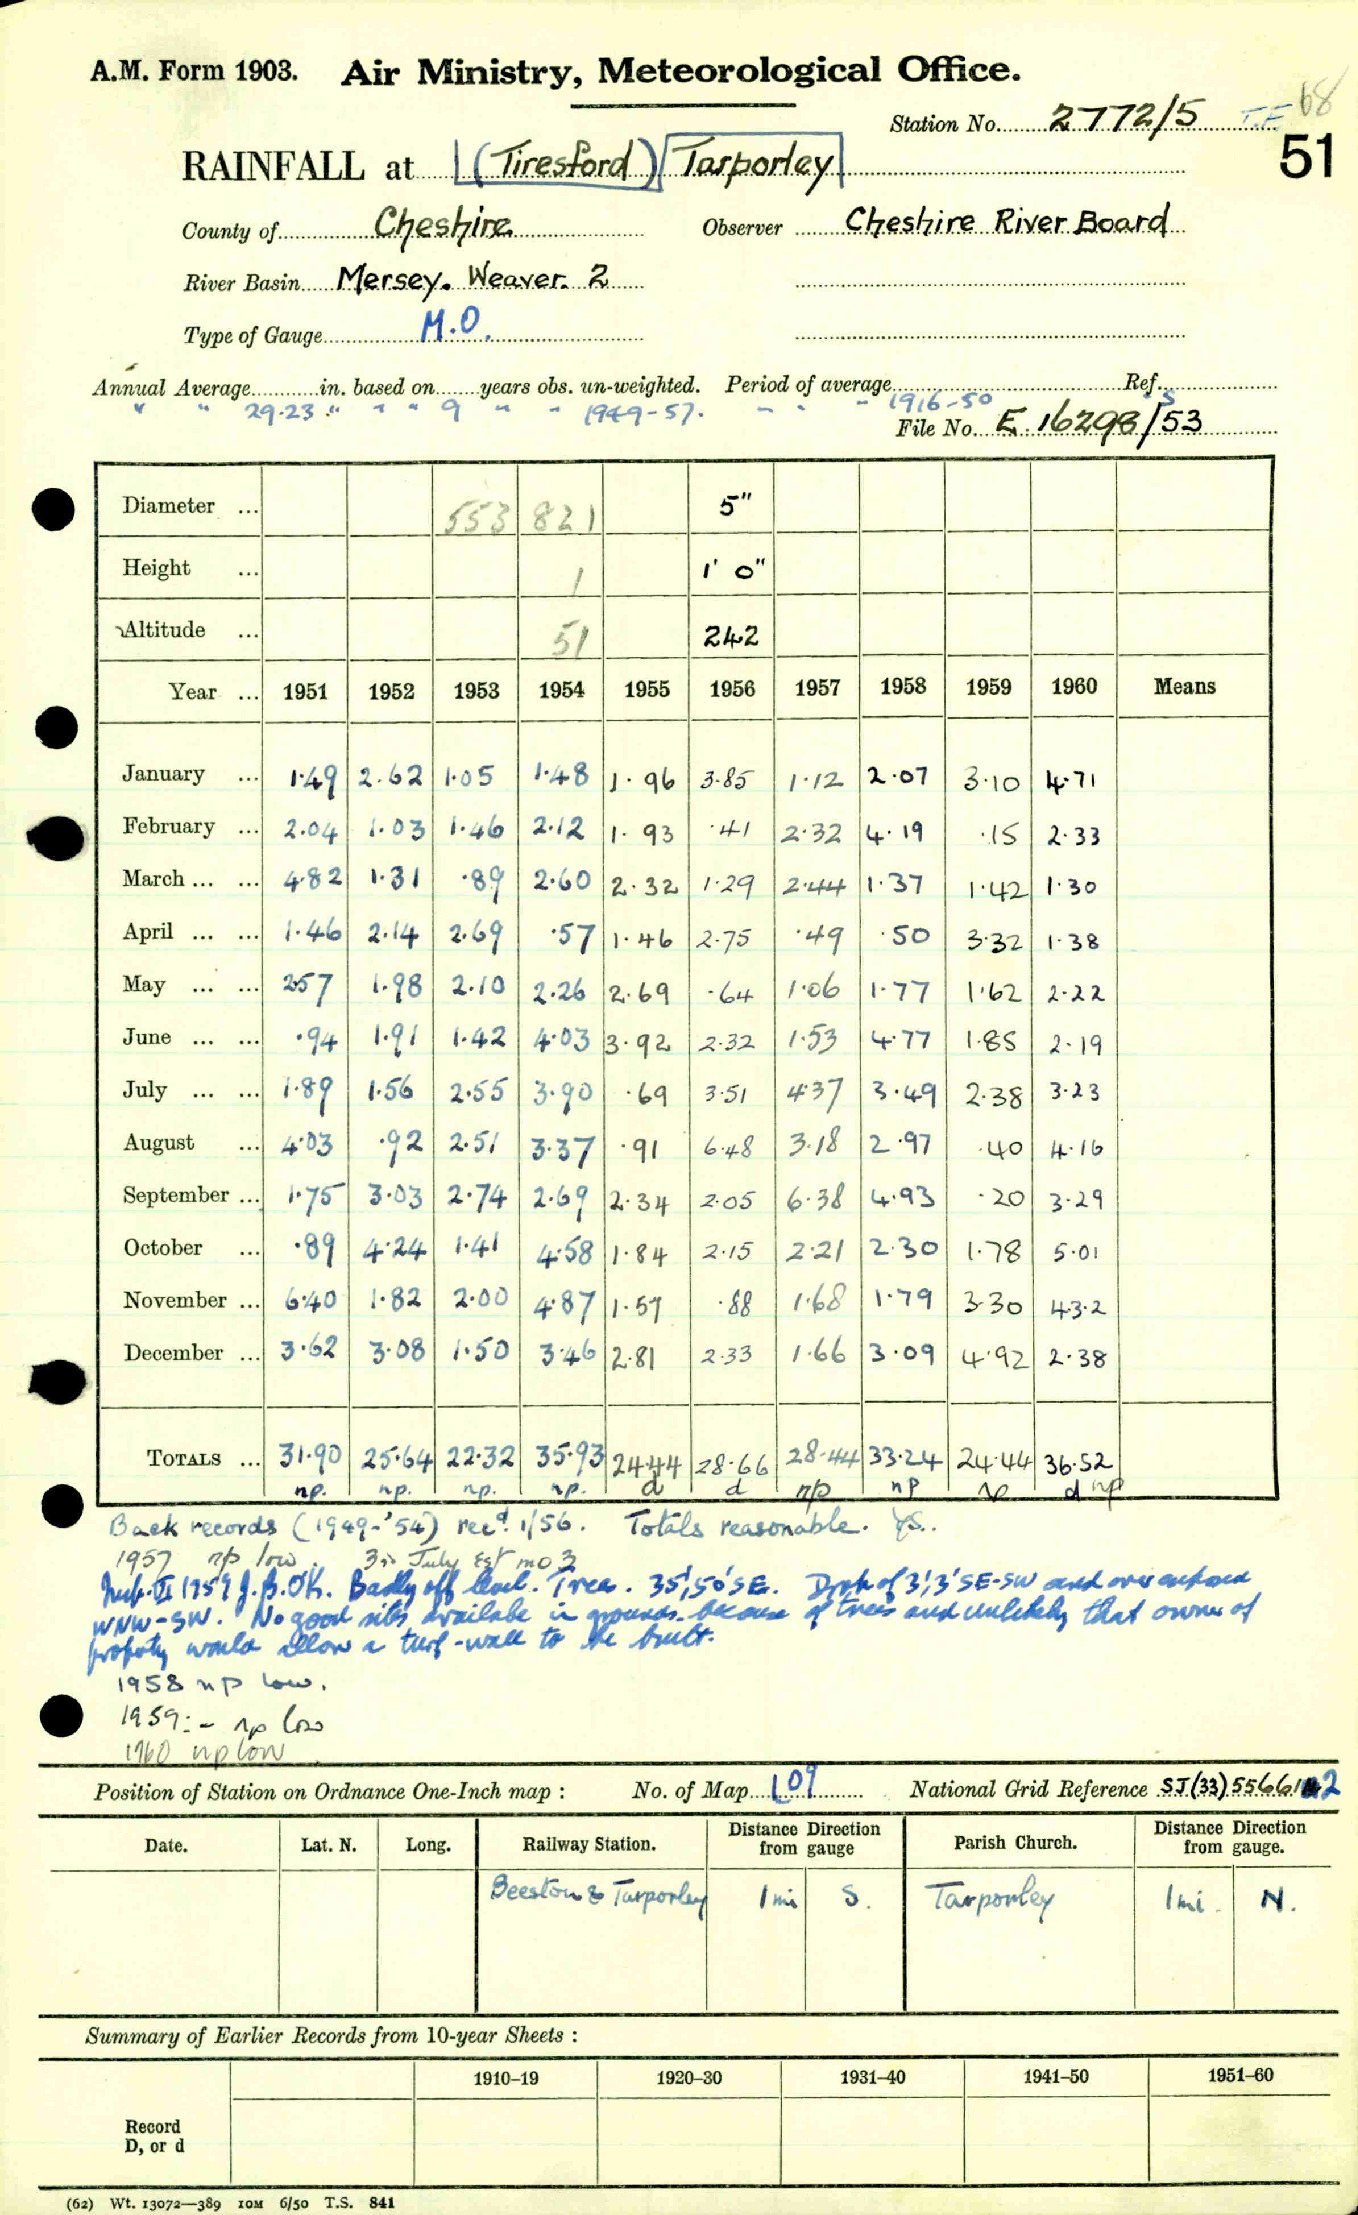 A.M. Form 1903. Air Ministry, Meteorological Office.
68
Station No. 2772/5 T.F.
51
RAINFALL at (Tiresford) Tarporley
County of Cheshire Observer Cheshire River Board
River Basin Mersey. Weaver. 2
Type of Gauge M.O.
Annual Average in. based on years obs. un-weighted. Period of average Ref.
" " 29.23 " " " 9 " " 1949-57. " " " 1916-50
File No. E 16298/53
Diameter ... 553 821 5"
Height ... 1 1' 0"
Altitude ... 51 242
Year ... 1951 1952 1953 1954 1955 1956 1957 1958 1959 1960 Means
January ... 1.49 2.62 1.05 1.48 1.96 3.85 1.12 2.07 3.10 4.71
February ... 2.04 1.03 1.46 2.12 1.93 .41 2.32 4.19 .15 2.33
March ... ... 4.82 1.31 .89 2.60 2.32 1.29 2.44 1.37 1.42 1.30
April ... ... 1.46 2.14 2.69 .57 1.46 2.75 .49 .50 3.32 1.38
May ... ... 2.57 1.98 2.10 2.26 2.69 .64 1.06 1.77 1.62 2.22
June ... ... .94 1.91 1.42 4.03 3.92 2.32 1.53 4.77 1.85 2.19
July ... ... 1.89 1.56 2.55 3.90 .69 3.51 4.37 3.49 2.38 3.23
August ... 4.03 .92 2.51 3.37 .91 6.48 3.18 2.97 .40 4.16
September ... 1.75 3.03 2.74 2.69 2.34 2.05 6.38 4.93 .20 3.29
October ... .89 4.24 1.41 4.58 1.84 2.15 2.21 2.30 1.78 5.01
November ... 6.40 1.82 2.00 4.87 1.57 .88 1.68 1.79 3.30 4.32
December ... 3.62 3.08 1.50 3.46 2.81 2.33 1.66 3.09 4.92 2.38
TOTALS ... 31.90 25.64 22.32 35.93 24.44 28.66 28.44 33.24 24.44 36.52
np. np. np. np. d d np np np d np
Back records (1949-'54) recd. 1/56. Totals reasonable.
1957 np low. July Est
1959 J.B. OK. Badly off level. Trees. 35', 50' SE. Drop of 3', 3' SE-SW and over exposed
WNW-SW. No good sites available in grounds because of trees and unlikely that owner of
property would allow a turf-wall to be built.
1958 np low.
1959:- np low
1960 np low
Position of Station on Ordnance One-Inch map : No. of Map 109 National Grid Reference SJ(33) 55661
Date. Lat. N. Long. Railway Station. Distance from Direction gauge Parish Church. Distance from Direction gauge.
Beeston & Tarporley 1 mi S. Tarporley 1 mi. N.
Summary of Earlier Records from 10-year Sheets :
1910–19 1920–30 1931–40 1941–50 1951–60
Record
D, or d
(62) Wt. 13072—389 10M 6/50 T.S. 841